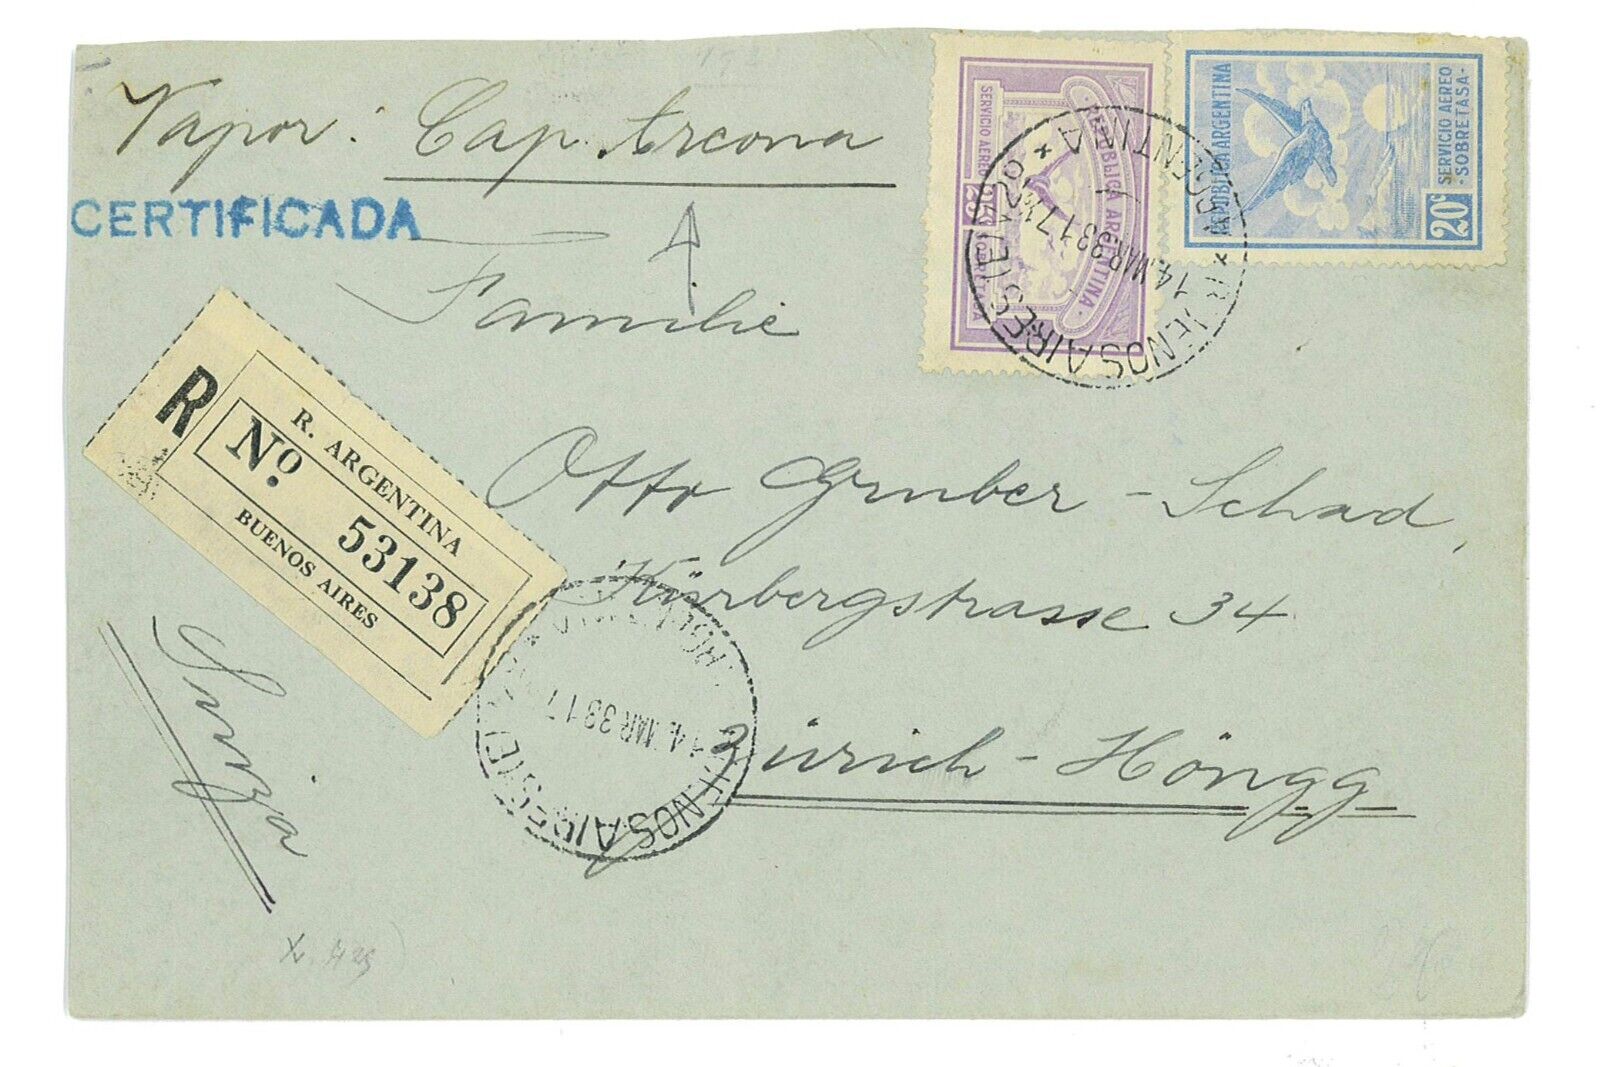 Vapor: Cap. Arcona
CERTIFICADA
Familie
Otto Gruber-Schad,
Kürbergstrasse 34
Zürich-Höngg
Suiza
R
R. ARGENTINA
Nº 53138
BUENOS AIRES
REPUBLICA ARGENTINA
SERVICIO AEREO
25c
SOBRETASA
REPUBLICA ARGENTINA
SERVICIO AEREO
-SOBRETASA-
20c
BUENOS AIRES
14.MAR.33 17
ARGENTINA
BUENOS AIRES
14.MAR.33 17